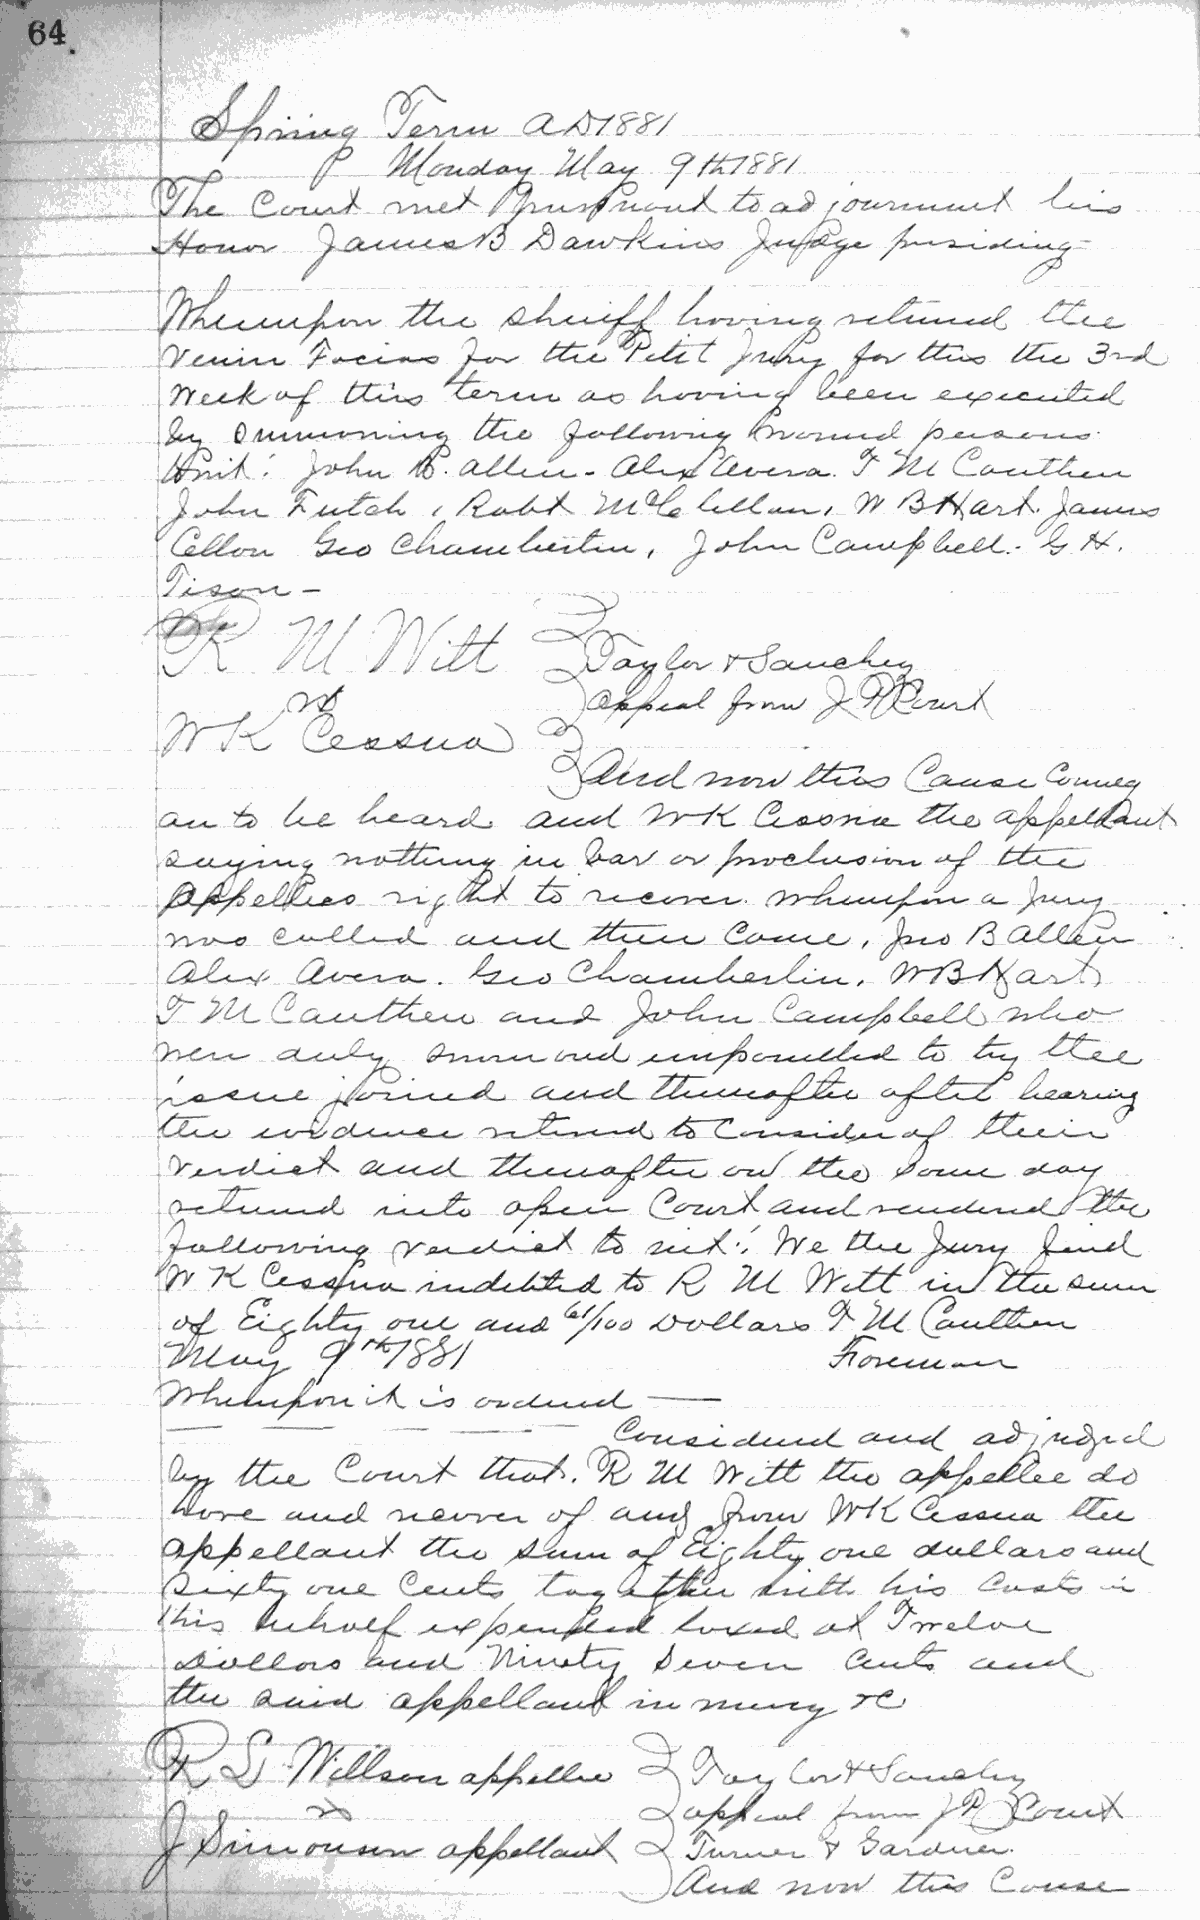 64
Spring Term AD 1881
Monday May 9th 1881
The Court met Pursuant to adjournment his
Honor James B Dawkins Judge presiding
Whereupon the sheriff having returned the
Venire Facias for the Petit Jury for this the 3rd
Week of this term as having been executed
by summoning the following named persons
towit: John B. Allen - Alex Avera. T M Cauthen
John Futch, Robt McClellan, W B Hart. James
Cellon Geo Chamberlin, John Campbell. G H.
Tison -
R M Witt Taylor & Sanchez
vs appeal from J P Court
W K Cessna
And now this Cause Coming
on to be heard and W K Cessna the appellant
saying nothing in bar or preclusion of the
Appellees right to recover. Whereupon a Jury
was called and then Came, Jno B Allen
Alex Avera. Geo Chamberlin, W B Hart
T M Cauthen and John Campbell who
were duly sworn and empanelled to try the
issue joined and thereafter after hearing
the evidence retired to Consider of their
Verdict and thereafter on the same day
returned into open Court and rendered the
following verdict to wit: We the Jury find
W K Cessna indebted to R M Witt in the sum
of Eighty one and 61/100 Dollars T M Cauthen
May 9th 1881 Foreman
Whereupon it is ordered
Considered and adjudged
by the Court that. R M Witt the appellee do
have and recover of and from W K Cessna the
appellant the sum of Eighty one dollars and
Sixty one Cents together with his Costs in
this behalf expended taxed at Twelve
Dollars and Ninety Seven Cents and
the said appellant in mercy &C
R S Willson appellee Taylor & Sanchez
vs appeal from J P Court
J Simonson appellant Turner & Gardner.
And now this Cause